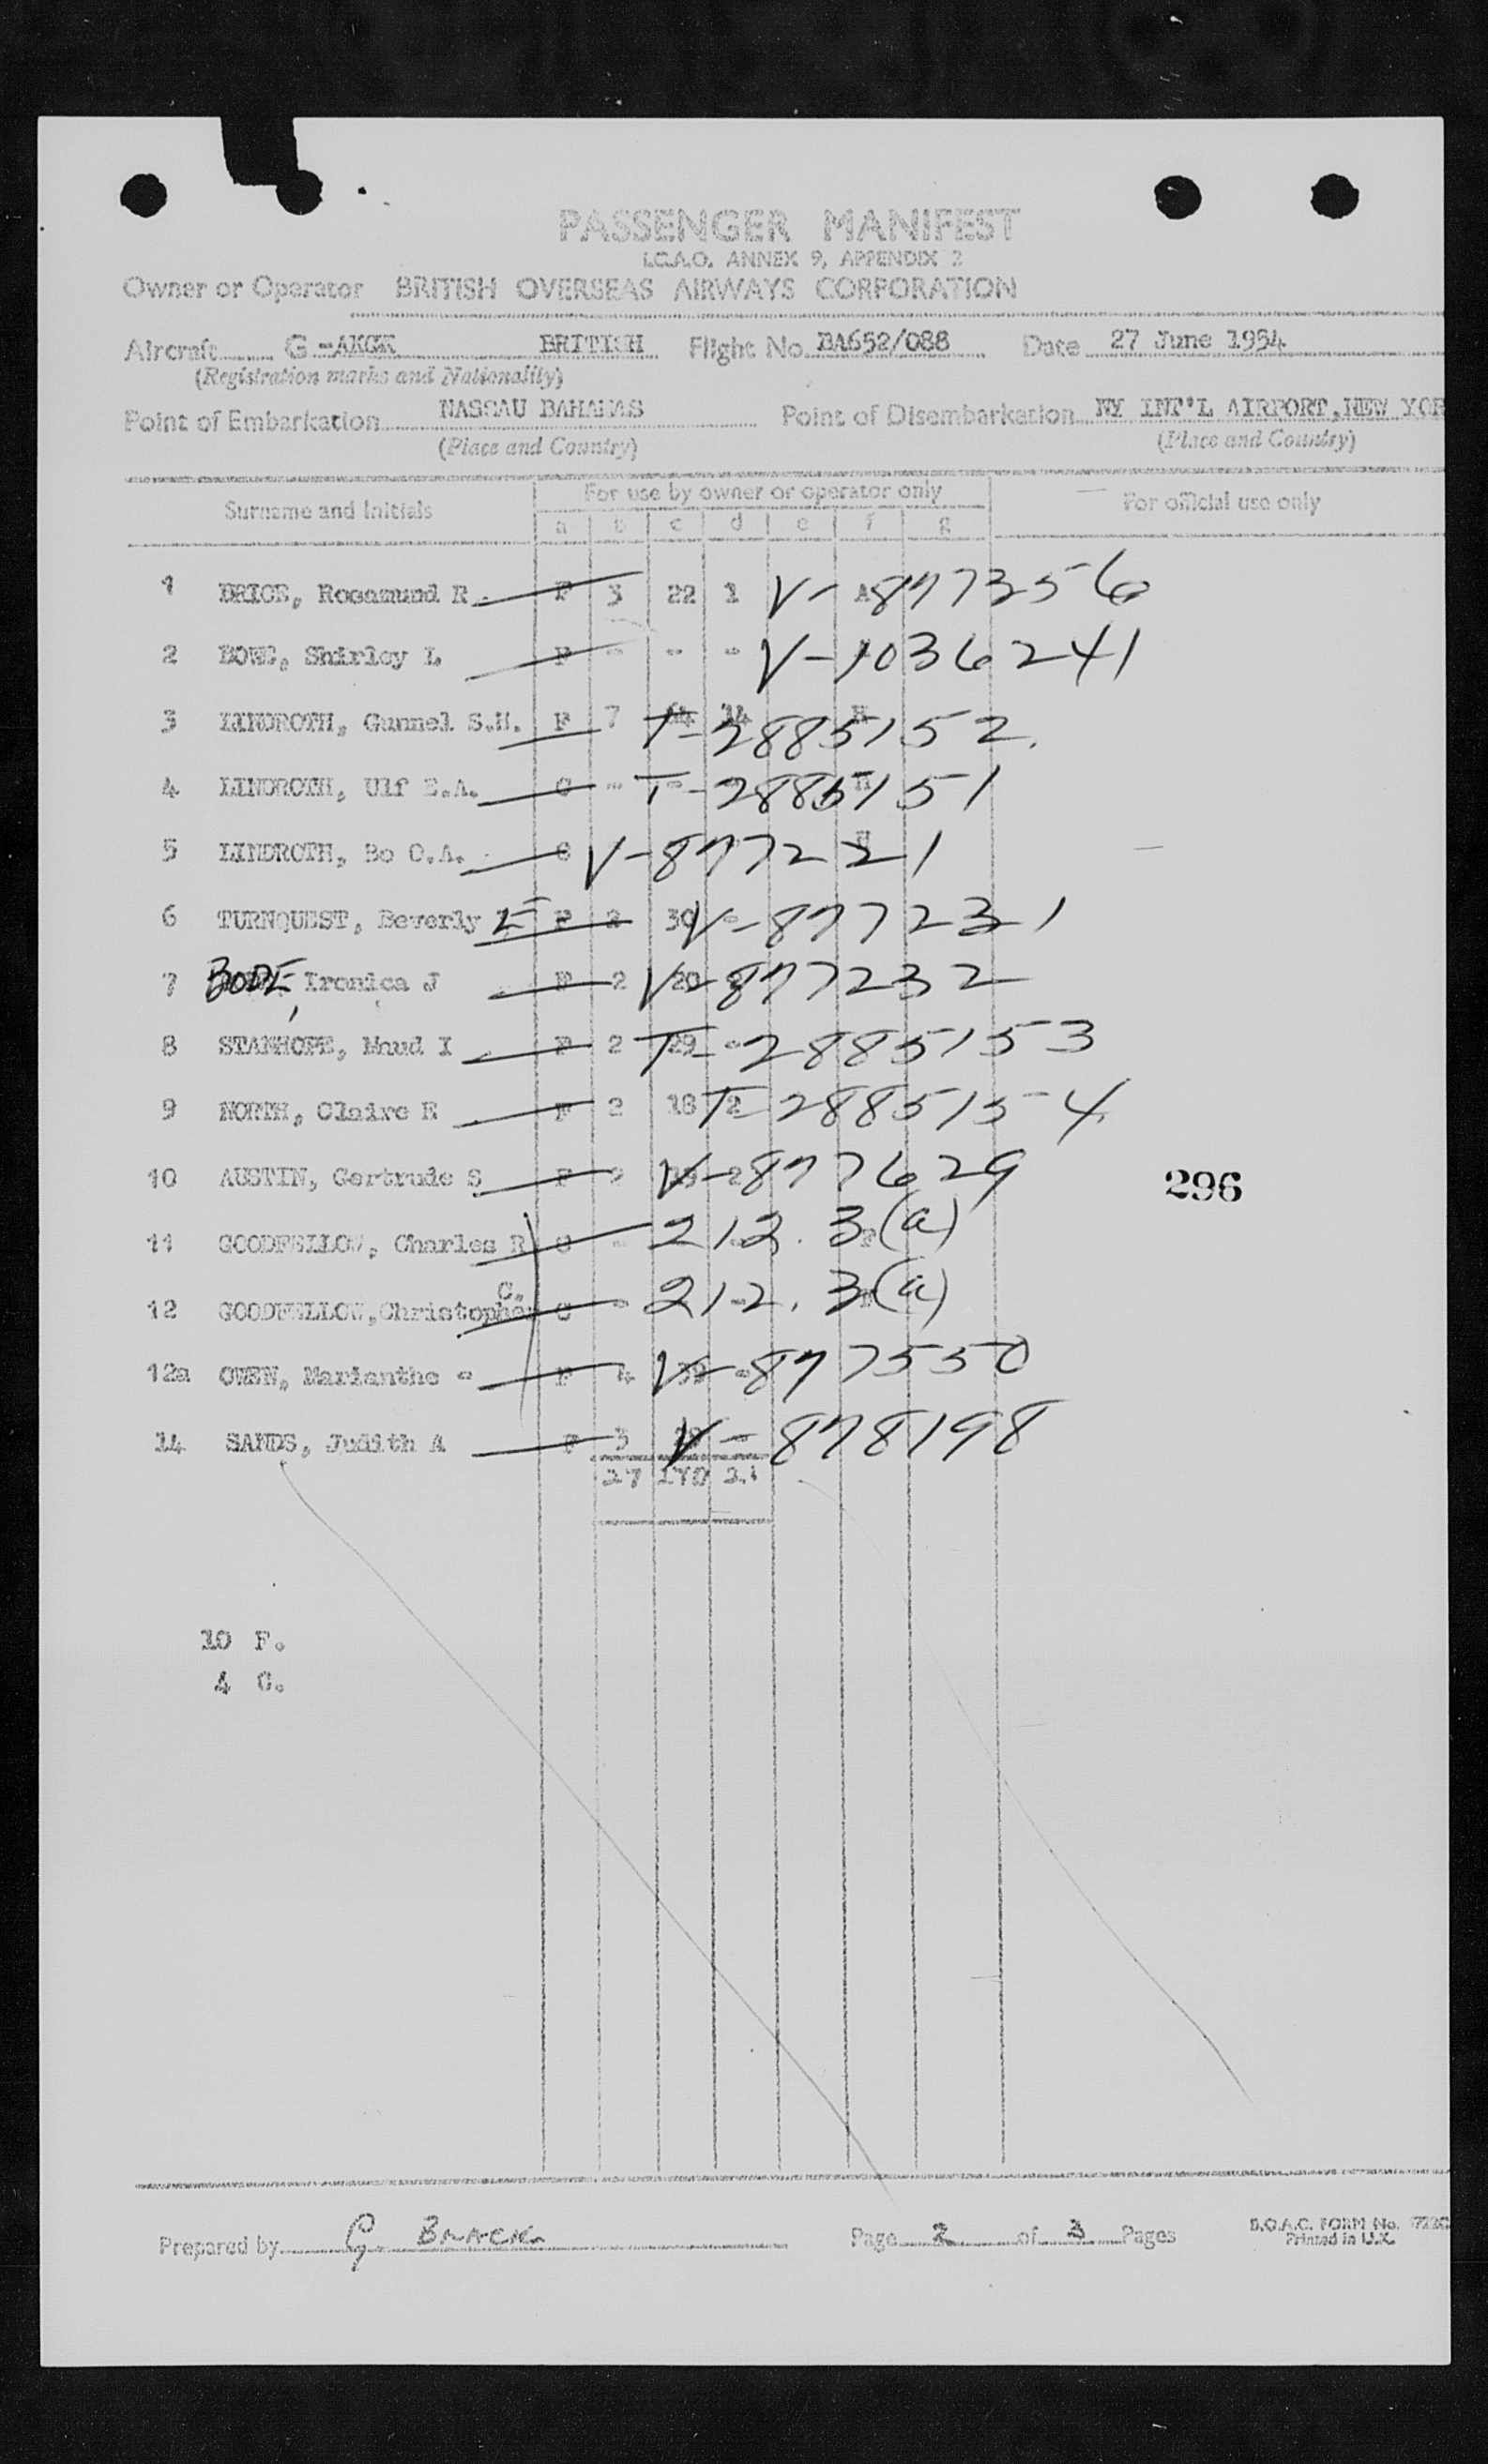 PASSENGER MANIFEST
I.C.A.O. ANNEX 9, APPENDIX 2
Owner or Operator BRITISH OVERSEAS AIRWAYS CORPORATION
Aircraft G-AKGK BRITISH Flight No. BA652/088 Date 27 June 1954
(Registration marks and Nationality)
Point of Embarkation NASSAU BAHAMAS Point of Disembarkation NY INT'L AIRPORT, NEW YOR
(Place and Country) (Place and Country)
Surname and Initials For use by owner or operator only For official use only
a b c d e f g
1 BRICE, Rosamund R. F 3 22 1 A V-877356
2 BOWE, Shirley L F - - - V-1036241
3 LINDROTH, Gunnel S.H. F 7 64 14 H T-2885152.
4 LINDROTH, Ulf E.A. C - - - H T-2885151
5 LINDROTH, Bo O.A. C H V-877221
6 TURNQUEST, Beverly E F 2 30 - V-877231
7 BODE, Ironica J F 2 20 V-877232
8 STANHOPE, Maud I F 2 29 - T-2885153
9 NORTH, Claire E F 2 18 2 T-2885154
10 AUSTIN, Gertrude S F 2 2 V-877629
11 GOODFELLOW, Charles R C - - - F 212.3(a)
12 GOODFELLOW, Christopher C. C - - 212.3(a)
12a OWEN, Marianthe - F 4 39 - V-877550
14 SANDS, Judith A F 3 - V-878198
27
296
10 F.
4 C.
Prepared by G. Black Page 2 of 3 Pages
B.O.A.C. FORM No.
Printed in U.K.